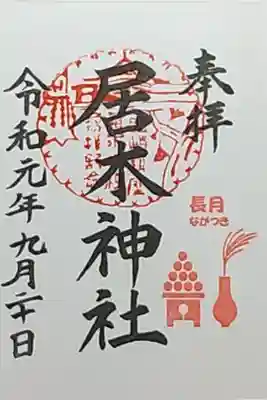 奉拝
長月
ながつき
居木神社
令和元年九月二十日